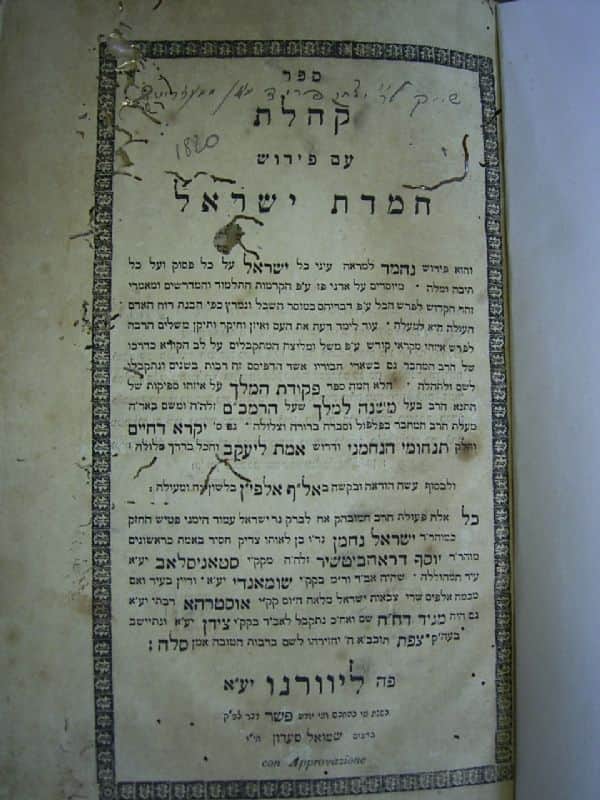 ספר
קהלת
1820
עם פירוש
חמדת ישראל
והוא פירוש נחמד למראה עיני כל ישראל על כל פסוק ועל כל
תיבה ומלה • מיוסדים על אדני פז ע״פ הקדמות התלמוד והמדרשים ומאמרי
זוהר הקדוש לפרש הכל ע״פ דבריהם במוסר השכל ונמרץ כפי הבנת רוח האדם
העולה היא למעלה • עוד לימד דעת את העם ואיזן וחיקר ותיקן משלים הרבה
לפרש איזהו מקראי קודש ע״פ משל ומליצה המתקבלים על לב הקורא כדרכו
של הרב המחבר גם בשארי חבוריו אשר הדפיסם זה רבות בשנים ונתקבלו
לשם ולתהלה • הלא המה ספר פקודת המלך על איזהו ספיקות של
התנא הרב בעל משנה למלך שעל הרמב״ם זלה״ה ומשם בארה
מעלת הרב המחבר בפלפול וסברה ברורה וצלולה • גם ס׳ יקרא דחיים
וחלק תנחומי הנחמני ודרוש אמת ליעקב והכל בדרך סלולה :
ולבסוף עשה הודאה ובקשה באל״ף אלפי״ן בלשון צח ומעולה :
כל אלה פעולת הרב המובהק אח לברק נר ישראל עמוד הימני פטיש החזק
כמוהר״ר ישראל נחמן נר״ו בן לאותו צדיק חסיד באמת כראשונים
מוהר״ר יוסף דראהביטשיר זלה״ה מקק״י סטאניסלאב יע״א
עיר תהוללה • שהיה אב״ד ור״מ בקק״י שומאנדי יע״א • ודיין בעיר ואם
מכמה אלפים שרי צבאות ישראל מלאה ה״ה קק״י אוסטרהא רבתי יע״א
גם היה מגיד דח״ח שם ואח״כ נתקבל לאב״ד בקק״י צידן יע״א ונתיישב
בעה״ק צפת תובב״א ה׳ יחזירהו לשם ברבות הטובה אמן סלה :
פה ליוורנו יע״א
בשנת מי כהחכם ומי יודע פשר דבר לפ״ק
בדפוס שמואל סעדון הי״ו
con Approvazione